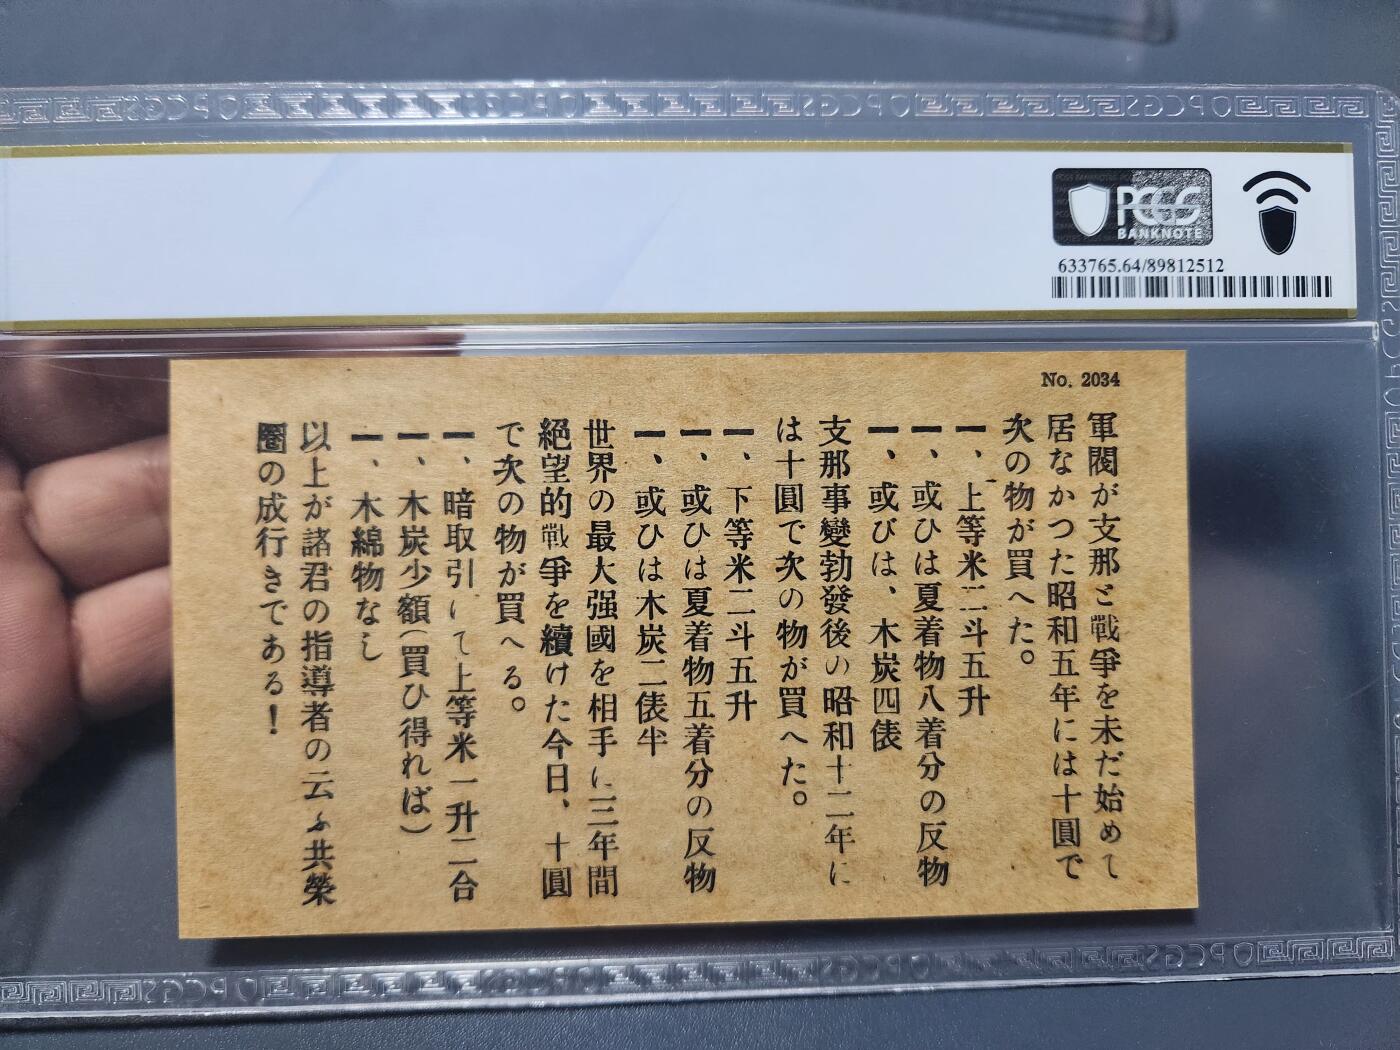 PCGS
BANKNOTE
633765.64/89812512
No. 2034
軍閥が支那と戰爭を未だ始めて
居なかつた昭和五年には十圓で
次の物が買へた。
一、上等米二斗五升
一、或ひは夏着物八着分の反物
一、或びは、木炭四俵
支那事變勃發後の昭和十二年に
は十圓で次の物が買へた。
一、下等米二斗五升
一、或ひは夏着物五着分の反物
一、或ひは木炭二俵半
世界の最大强國を相手に三年間
絕望的戰爭を續けた今日、十圓
で次の物が買へる。
一、暗取引にて上等米一升二合
一、木炭少額(買ひ得れば)
一、木綿物なし
以上が諸君の指導者の云ふ共榮
圈の成行きである!